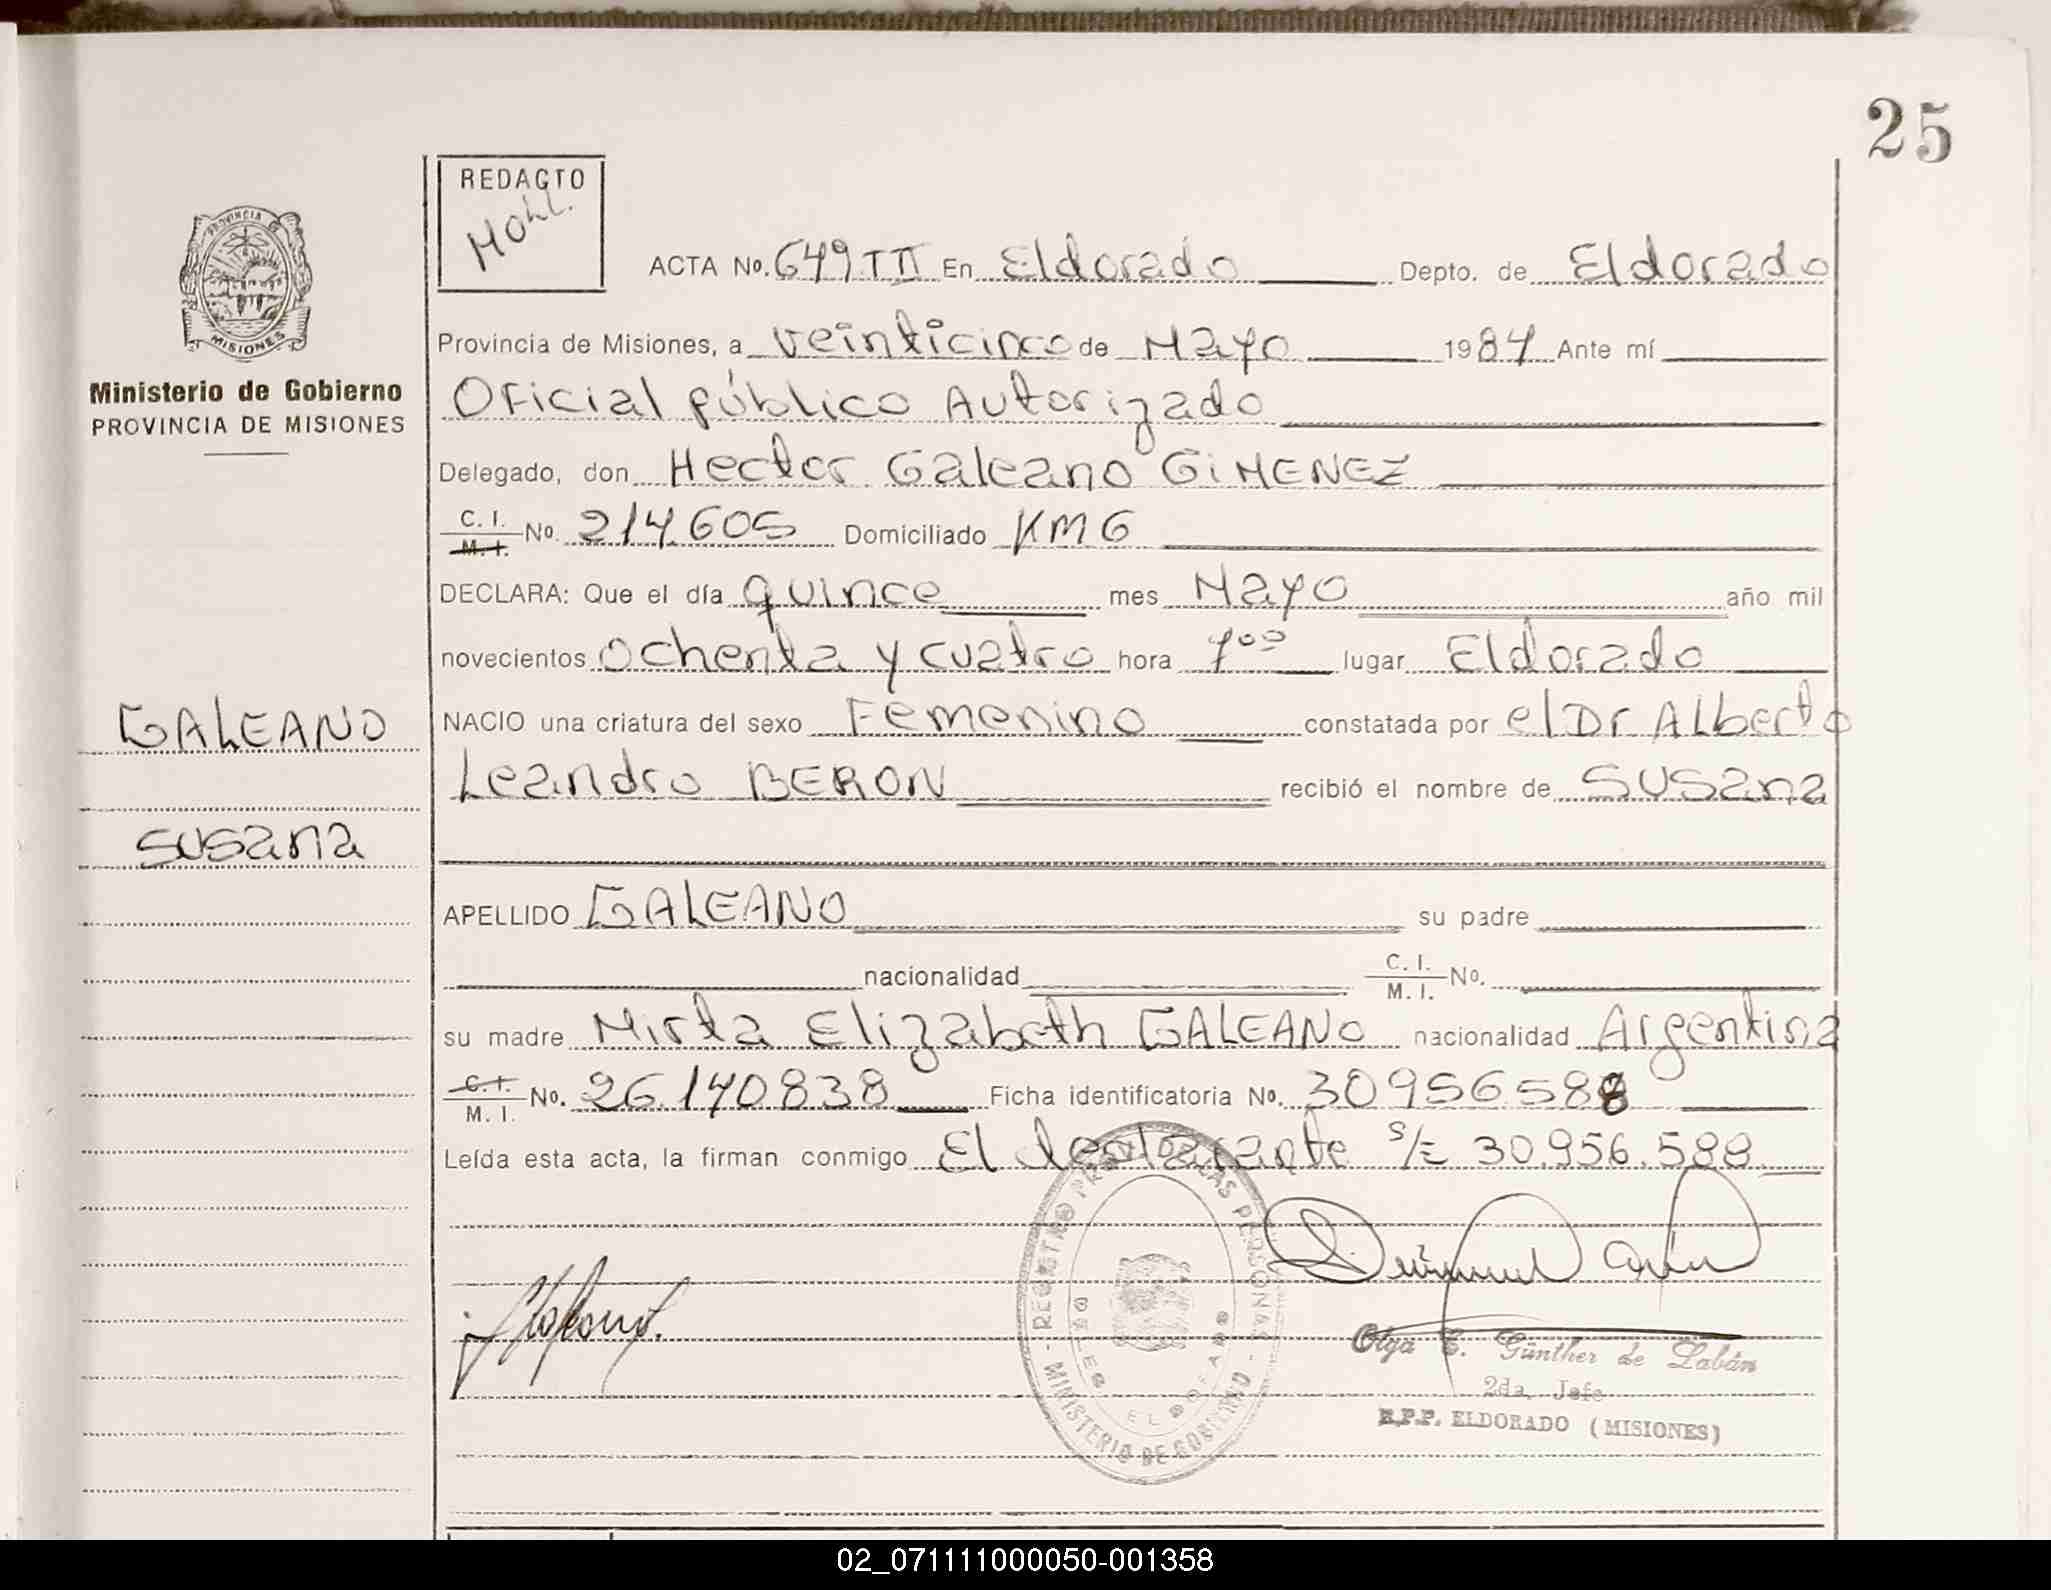 25
REDACTO
Mohl.
PROVINCIA DE
MISIONES
Ministerio de Gobierno
PROVINCIA DE MISIONES
ACTA No. 649 TII En Eldorado Depto. de Eldorado
Provincia de Misiones, a veinticinco de Mayo 1984 Ante mí
Oficial público Autorizado
Delegado, don Hector Galeano GIMENEZ
C. I. M. I. No. 214.605 Domiciliado KM 6
DECLARA: Que el día quince mes Mayo año mil
novecientos ochenta y cuatro hora 7°° lugar Eldorado
NACIO una criatura del sexo Femenino constatada por el Dr Alberto
Leandro BERON recibió el nombre de Susana
GALEANO
Susana
APELLIDO GALEANO su padre
nacionalidad C. I. M. I. No.
su madre Mirta Elizabeth GALEANO nacionalidad Argentina
C. I. M. I. No. 26.140.838 Ficha identificatoria No. 30956588
Leída esta acta, la firman conmigo El declarante s/E 30.956.588
REGISTRO PROV. DE LAS PERSONAS
MINISTERIO DE GOBIERNO
ELDORADO
Olga E. Günther de Labán
2da. Jefe
R.P.P. ELDORADO (MISIONES)
02_071111000050-001358